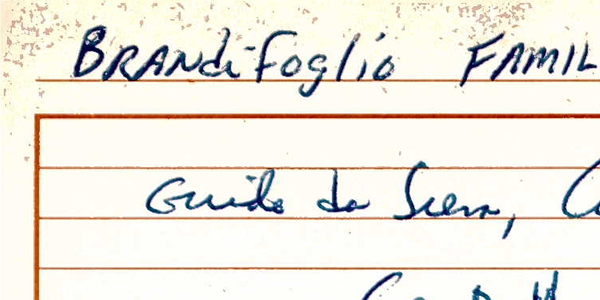 BRANdi-foglio FAMIL
Guido da Siena,